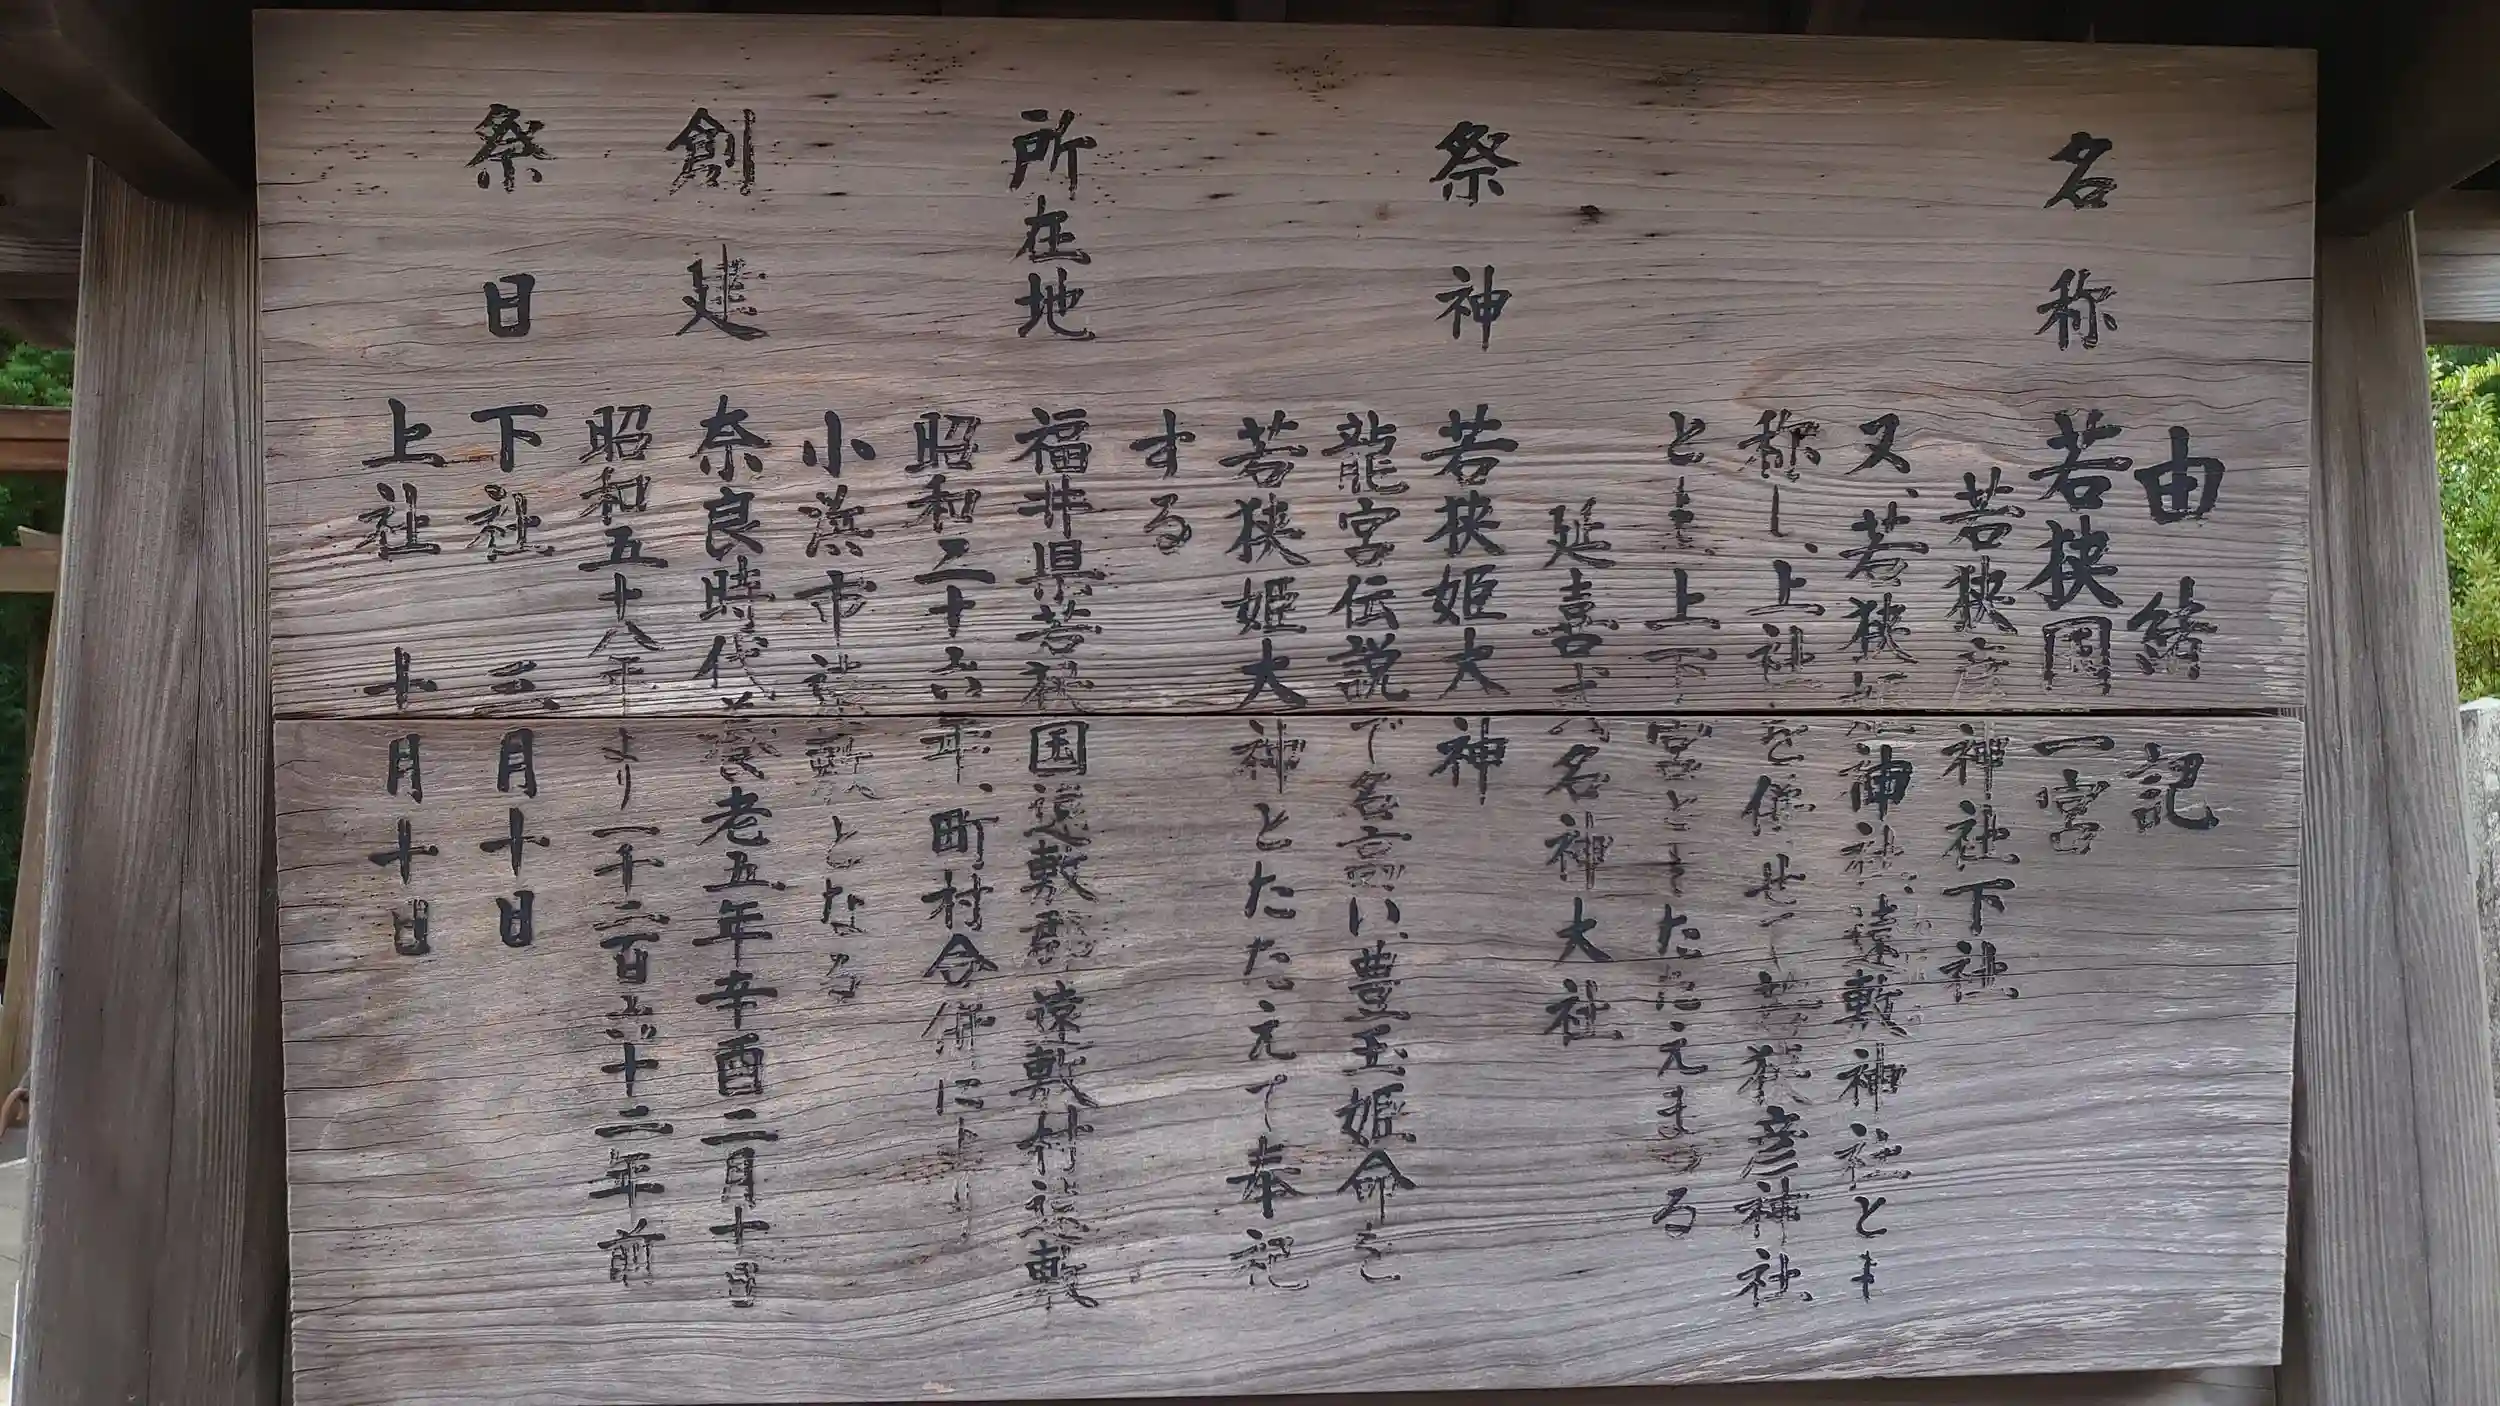 由緒記
名称 若狭国一宮
若狭彦神社下社
又、若狭姫神社、遠敷神社とも
称し、上社を併せて若狭彦神社
とも上下宮ともたたえまつる
延喜式名神大社
祭神 若狭姫大神
龍宮伝説で名高い、豊玉姫命を
若狭姫大神とたたえて奉祀
する
所在地 福井県若狭国遠敷郡遠敷村遠敷
昭和二十六年、町村合併により
小浜市遠敷となる
創建 奈良時代養老五年辛酉二月十日
昭和五十八年より一千二百六十二年前
祭日 下社 三月十日
上社 十月十日